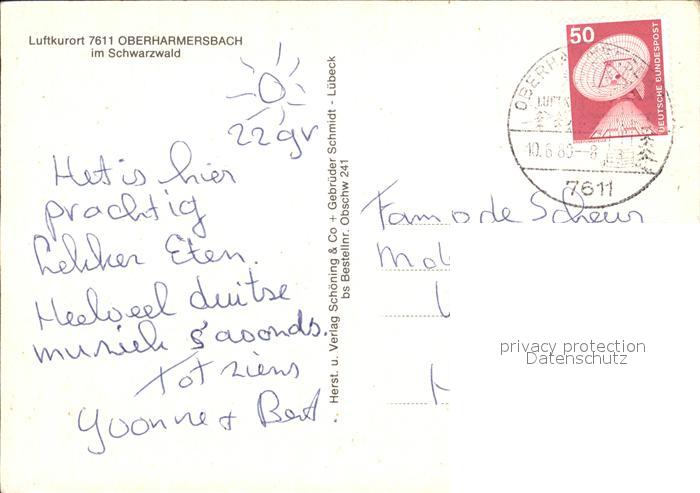 Luftkurort 7611 OBERHARMERSBACH
im Schwarzwald
22 gr
Het is hier
prachtig
Lekker Eten.
Heelveel duitse
muziek s'avonds.
Tot ziens
Yvonne + Bert.
Herst. u. Verlag Schöning & Co + Gebrüder Schmidt - Lübeck
bs Bestellnr. Obschw 241
50
DEUTSCHE BUNDESPOST
10.6.80--8
7611
Fam. de Scheur
privacy protection
Datenschutz